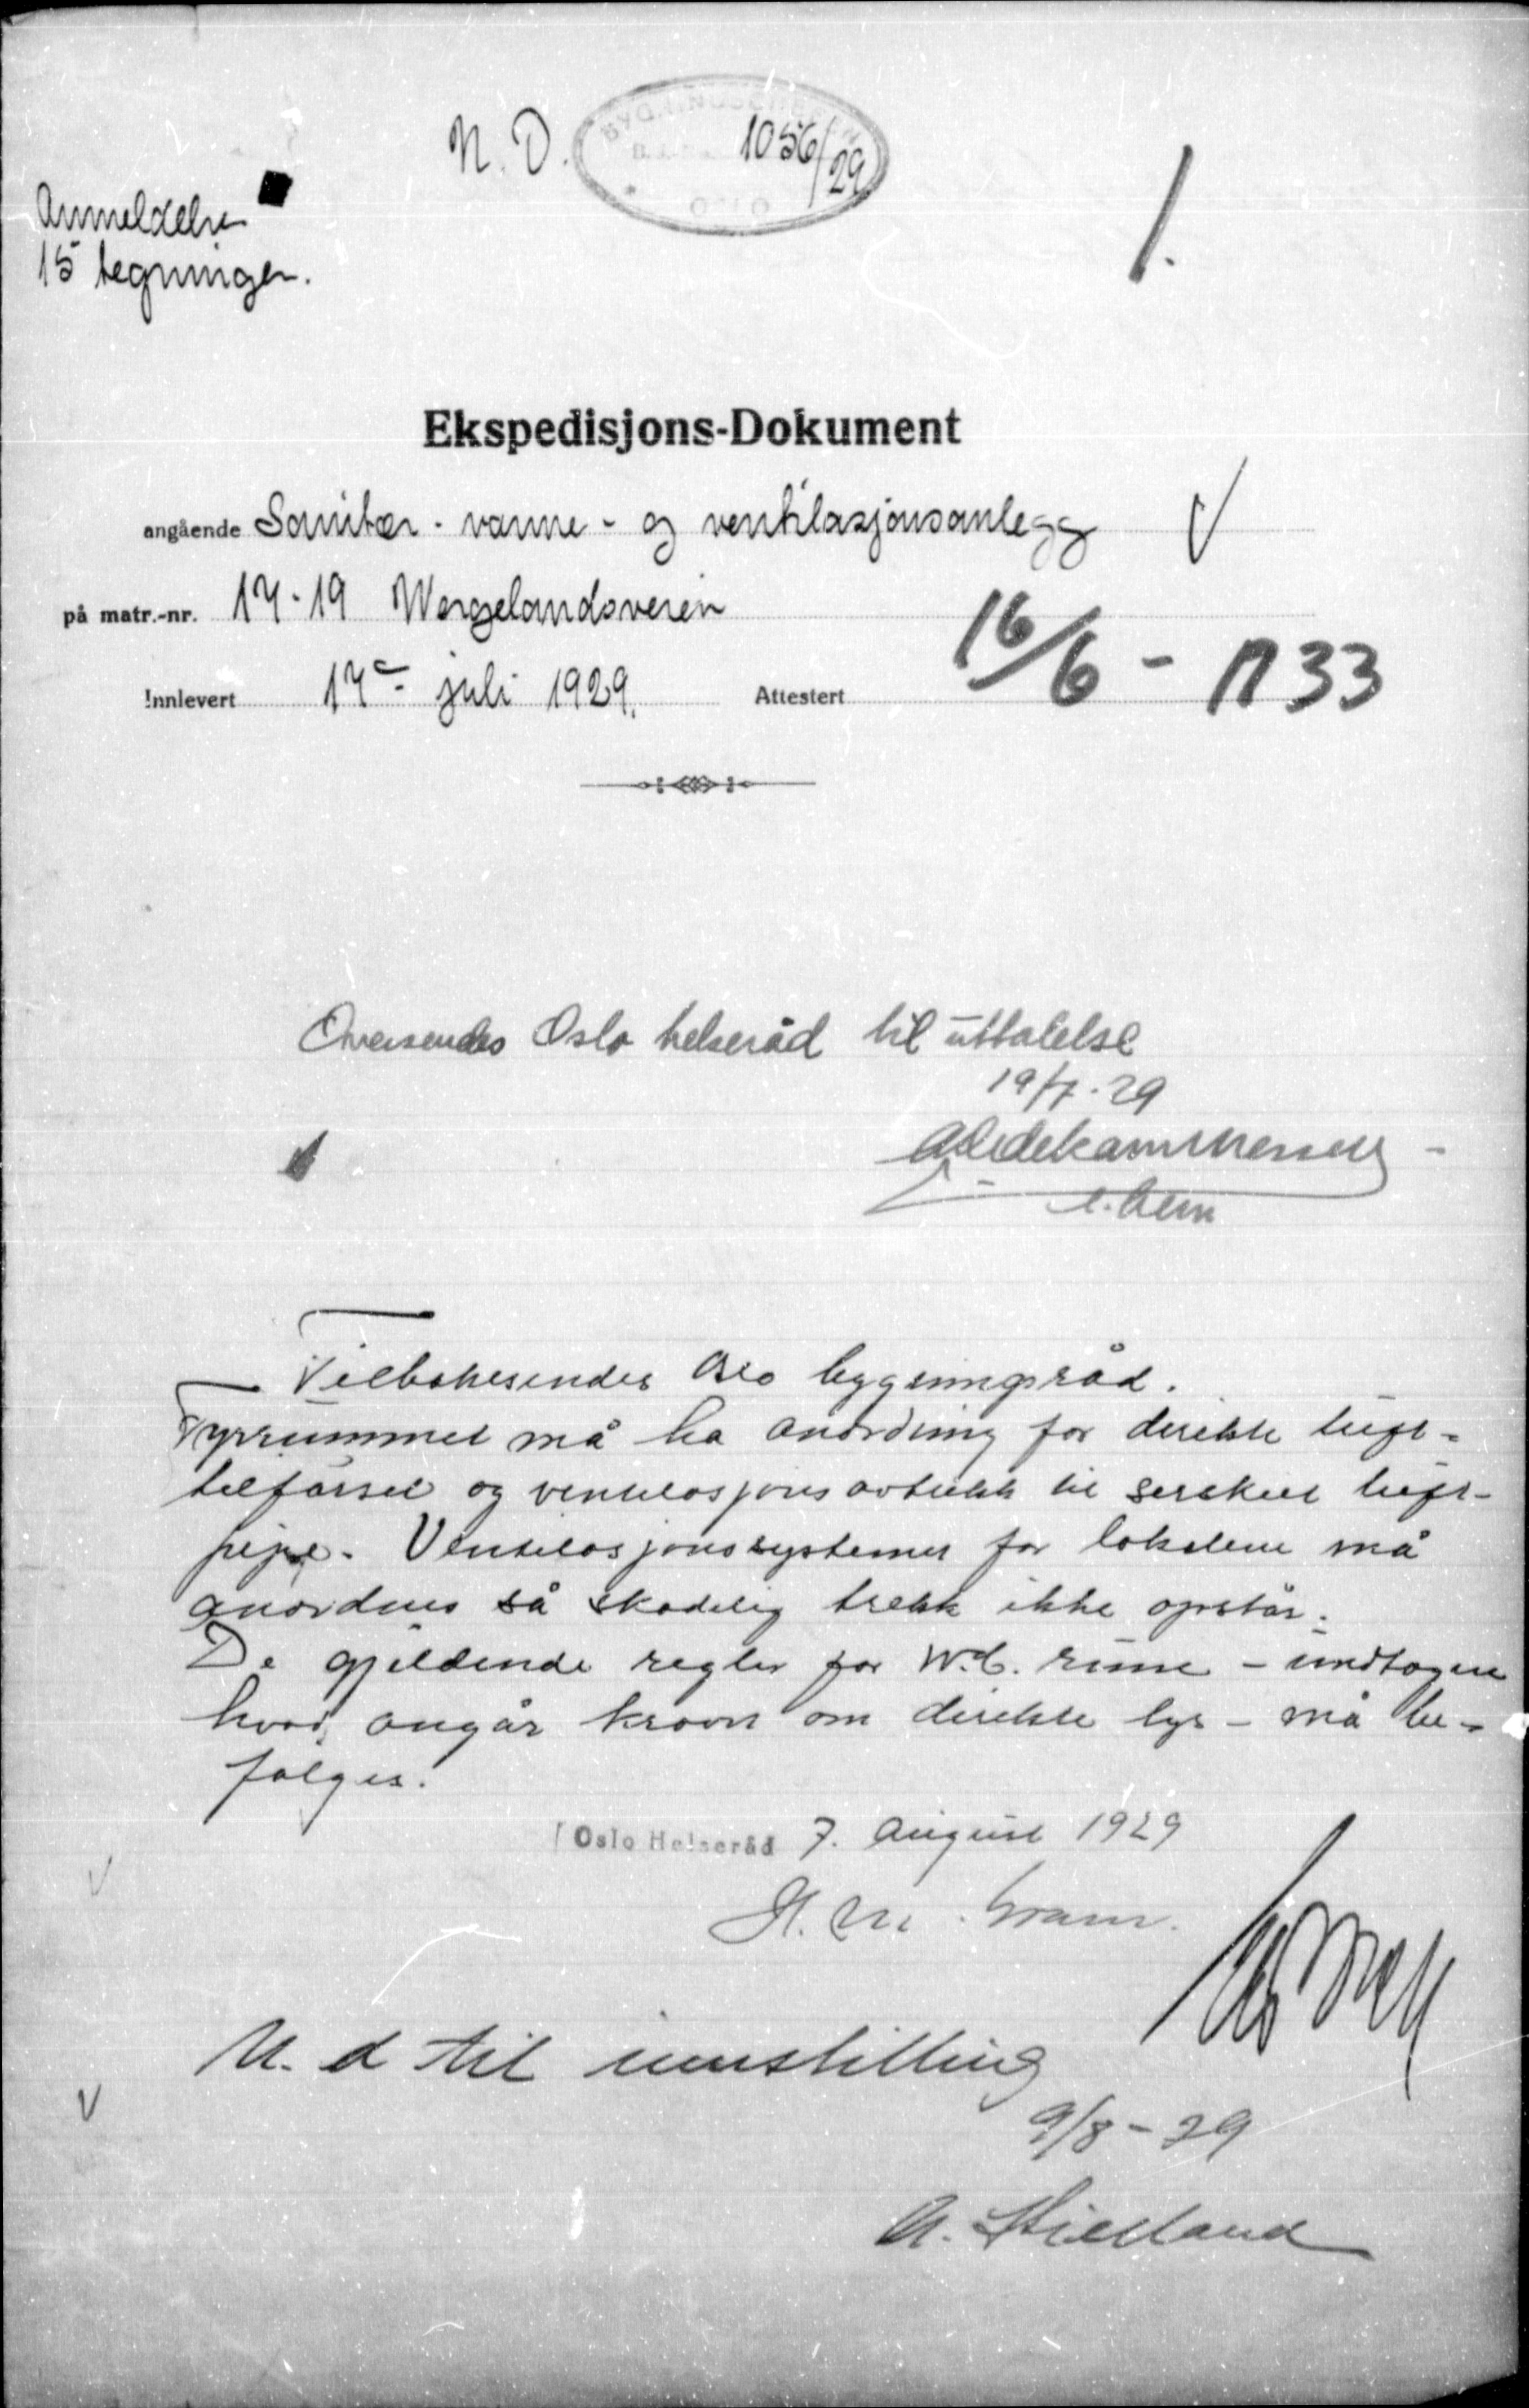 N. D.
BYGNINGSCHEFEN
1056/29
OSLO
1.
Anmeldelse
15 tegninger.
Ekspedisjons-Dokument
angående Sanitær- varme- og ventilasjonsanlegg
på matr.-nr. 17-19 Wergelandsveien
Innlevert 17de juli 1929. Attestert 16/6 - 1933
Oversendes Oslo helseråd til uttalelse
19/7.29
Tilbakesendes Oslo bygningsråd.
Fyrrummet må ha anordning for direkte luft-
tilførsel og ventilasjonsavtrekk til særskilt luft-
pipe. Ventilasjonssystemet for lokalene må
anordnes så skadelig trekk ikke opstår.
De gjeldende regler for W.C. rume - undtagen
hvad angår kravet om direkte lys - må be-
følges.
Oslo Helseråd 7. August 1929
H. M. Gram.
N. d til innstilling
9/8-29
A. Kielland